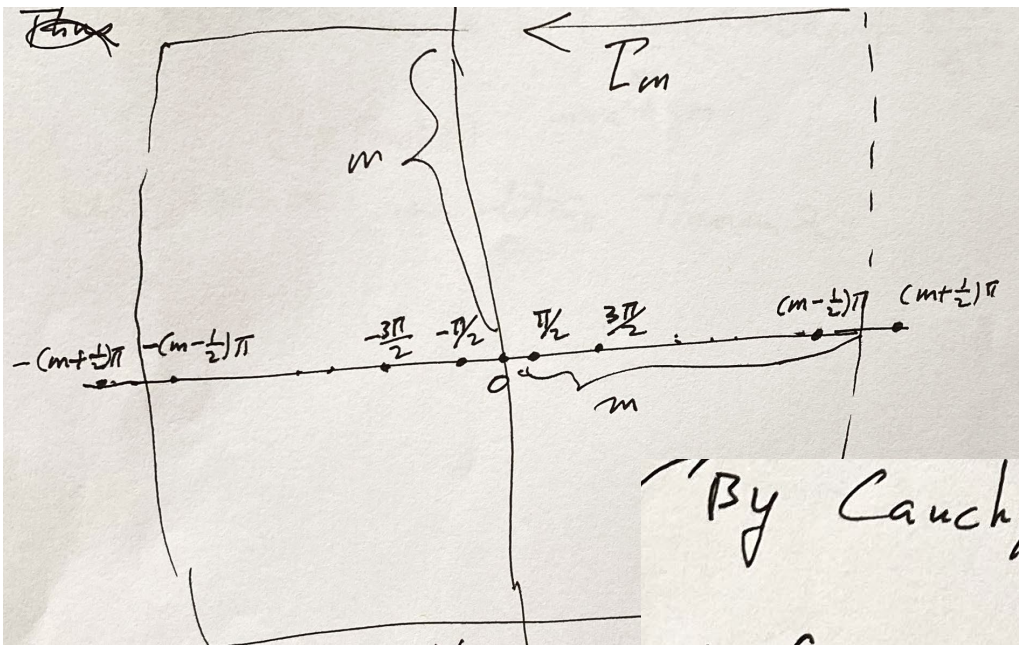 Thus
Γm
m
-(m+½)π -(m-½)π -3π/2 -π/2 0 π/2 3π/2 (m-½)π (m+½)π
m
By Cauch